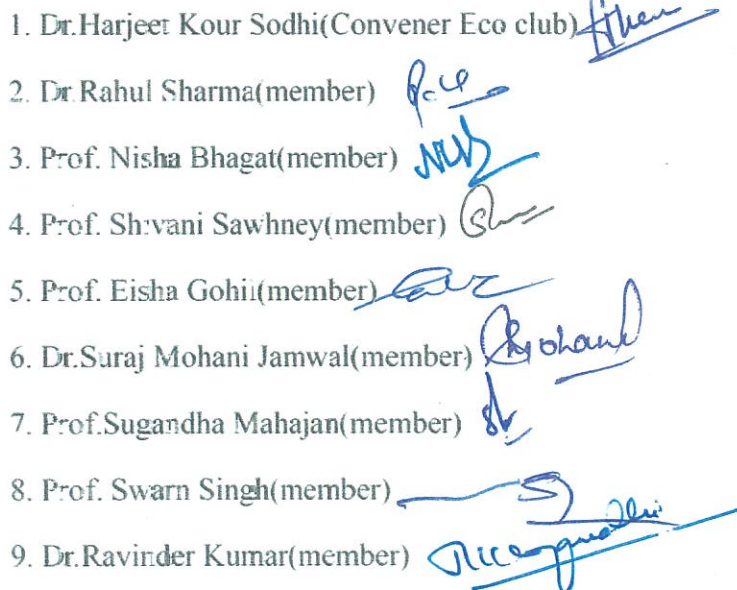 1. Dr.Harjeet Kour Sodhi(Convener Eco club)
2. Dr.Rahul Sharma(member)
3. Prof. Nisha Bhagat(member)
4. Prof. Shivani Sawhney(member)
5. Prof. Eisha Gohil(member)
6. Dr.Suraj Mohani Jamwal(member)
7. Prof.Sugandha Mahajan(member)
8. Prof. Swarn Singh(member)
9. Dr.Ravinder Kumar(member)